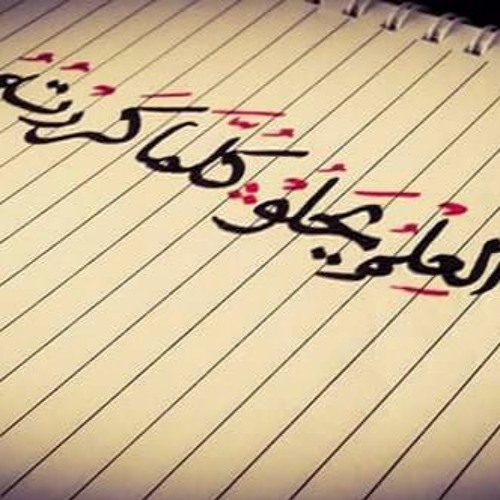 العِلْمُ يَحْلُوْ كُلَّمَا كَرَرْتُهُ